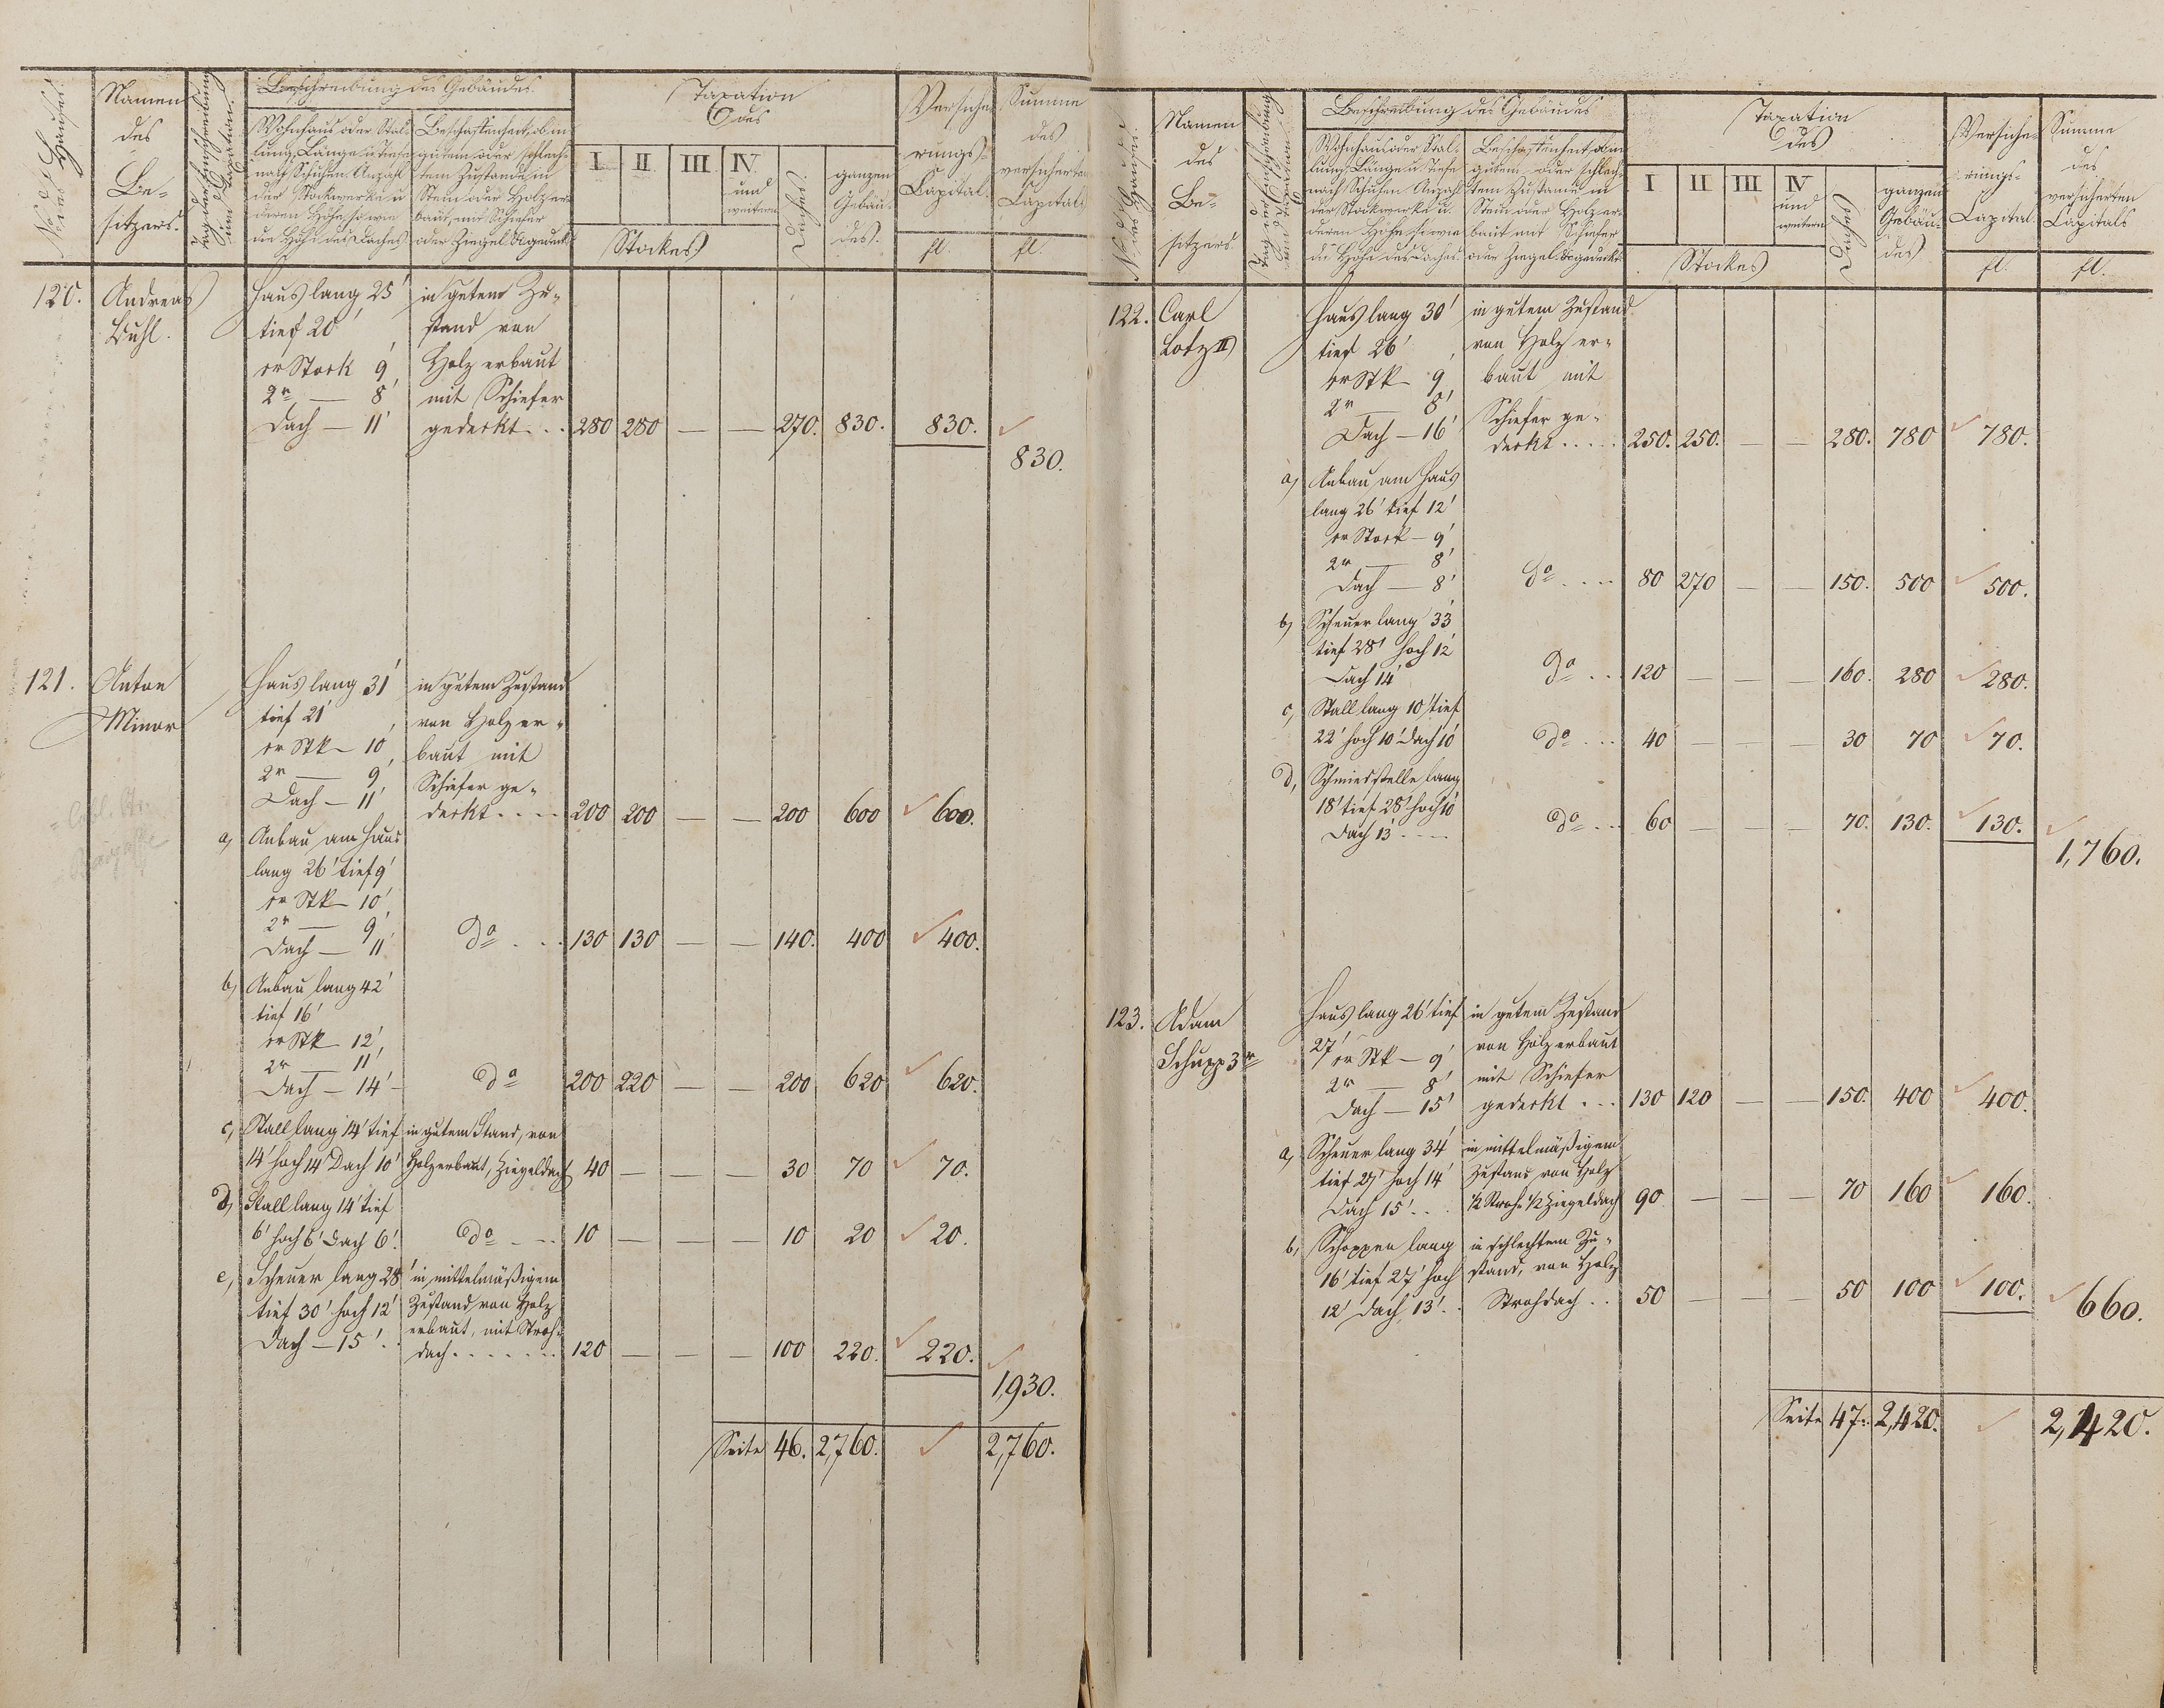 No. des Hauses.
Namen
des
Be-
sitzers.
Tag der Einschreibung
und Taxation.
Beschreibung des Gebäudes.
Wohnhaus oder Stal-
lung, Länge u. Tiefe
nach Schuhen Anzahl
der Stockwerke u
deren Höhe so wie
die Höhe des Daches
Beschaffenheit, ob in
gutem oder schlech-
tem Zustande, in
Stein oder Holz er-
baut, mit Schiefer
oder Ziegel &c gedeckt.
Taxation
des
I II III IV
und
weitern
Stockes
Daches.
ganzen
Gebäu-
des.
Versiche-
rungs-
Capital.
fl.
Summe
des
versicherten
Capitals
fl.
120. Andreas
Buhl.
Haus lang 25'
tief 20'
1r Stock 9'
2r — 8'
Dach — 11'
in gutem Zu-
stand von
Holz erbaut
mit Schiefer
gedeckt . . 280 280 — — 270. 830. 830.
830.
121. Anton
Minor
Haus lang 31'
tief 21'
1r Stk — 10'
2r — 9'
Dach — 11'
in gutem Zustand
von Holz er-
baut mit
Schiefer ge-
deckt . . . . 200 200 — — 200 600 600.
a, Anbau am Haus
lang 26' tief 9'
1r Stk — 10'
2r — 9'
Dach — 11' do . . . 130 130 — — 140. 400 400.
b, Anbau lang 42'
tief 16'
1r Stk 12'
2r — 11'
Dach — 14' do 200 220 — — 200 620 620.
c, Stall lang 14' tief
14' hoch 14' Dach 10'
in gutem Stand, von
Holz erbaut, Ziegeldach 40 — — — 30 70 70.
d, Stall lang 14' tief
6' hoch 6' Dach 6'. do . . . 10 — — — 10 20 20.
e, Scheuer lang 28'
tief 30' hoch 12'
Dach — 15' . .
in mittelmäßigem
Zustand von Holz
erbaut, mit Stroh-
dach . . . . . . . 120 — — — 100 220. 220.
1,930.
Seite 46. 2,760. 2,760.
No. des Hauses.
Namen
des
Be-
sitzers
Tag der Einschreibung
und Taxation.
Beschreibung des Gebäudes
Wohnhaus oder Stal-
lung, Länge u. Tiefe
nach Schuhen Anzahl
der Stockwerke u.
deren Höhe so wie
die Höhe des Daches.
Beschaffenheit, ob in
gutem oder schlech-
tem Zustande in
Stein oder Holz er-
baut mit Schiefer
oder Ziegel &c gedeckt.
Taxation
des
I II III IV
und
weitern
Stockes
Daches
ganzen
Gebäu-
des
Versiche-
rungs-
Capital.
fl.
Summe
des
versicherten
Capitals
fl.
122. Carl
Lotz II
Haus lang 30'
tief 26'
1r Stk — 9'
2r — 8'
Dach — 16'
in gutem Zustand
von Holz er-
baut mit
Schiefer ge-
deckt . . . . . 250. 250. — — 280. 780 780.
a, Anbau am Haus
lang 26' tief 12'
1r Stock — 9'
2r — 8'
Dach — 8' do . . . 80 270 — — 150. 500 500.
b, Scheuer lang 33'
tief 28' hoch 12'
Dach 14' do . . 120 — — — 160. 280 280.
c, Stall lang 10' tief
22' hoch 10' Dach 10' do . . . 40 — — — 30 70 70.
d, Schmiedstelle lang
18' tief 28' hoch 10'
Dach 13' . . . . do . . . 60 — — — 70. 130. 130.
1,760.
123. Adam
Schupp 3r
Haus lang 26' tief
27' 1r Stk — 9'
2r — 8'
Dach — 15'
in gutem Zustand
von Holz erbaut
mit Schiefer
gedeckt . . . 130 120 — — 150. 400 400.
a, Scheuer lang 34'
tief 27' hoch 14'
Dach 15' . . .
in mittelmäßigem
Zustand von Holz
1/2 Stroh- 1/2 Ziegeldach 90 — — — 70 160 160.
b, Schoppen lang
16' tief 27' hoch
12' Dach 13' . .
in schlechtem Zu-
stand, von Holz
Strohdach . . 50 — — — 50 100 100.
660.
Seite 47. 2,420. 2,420.